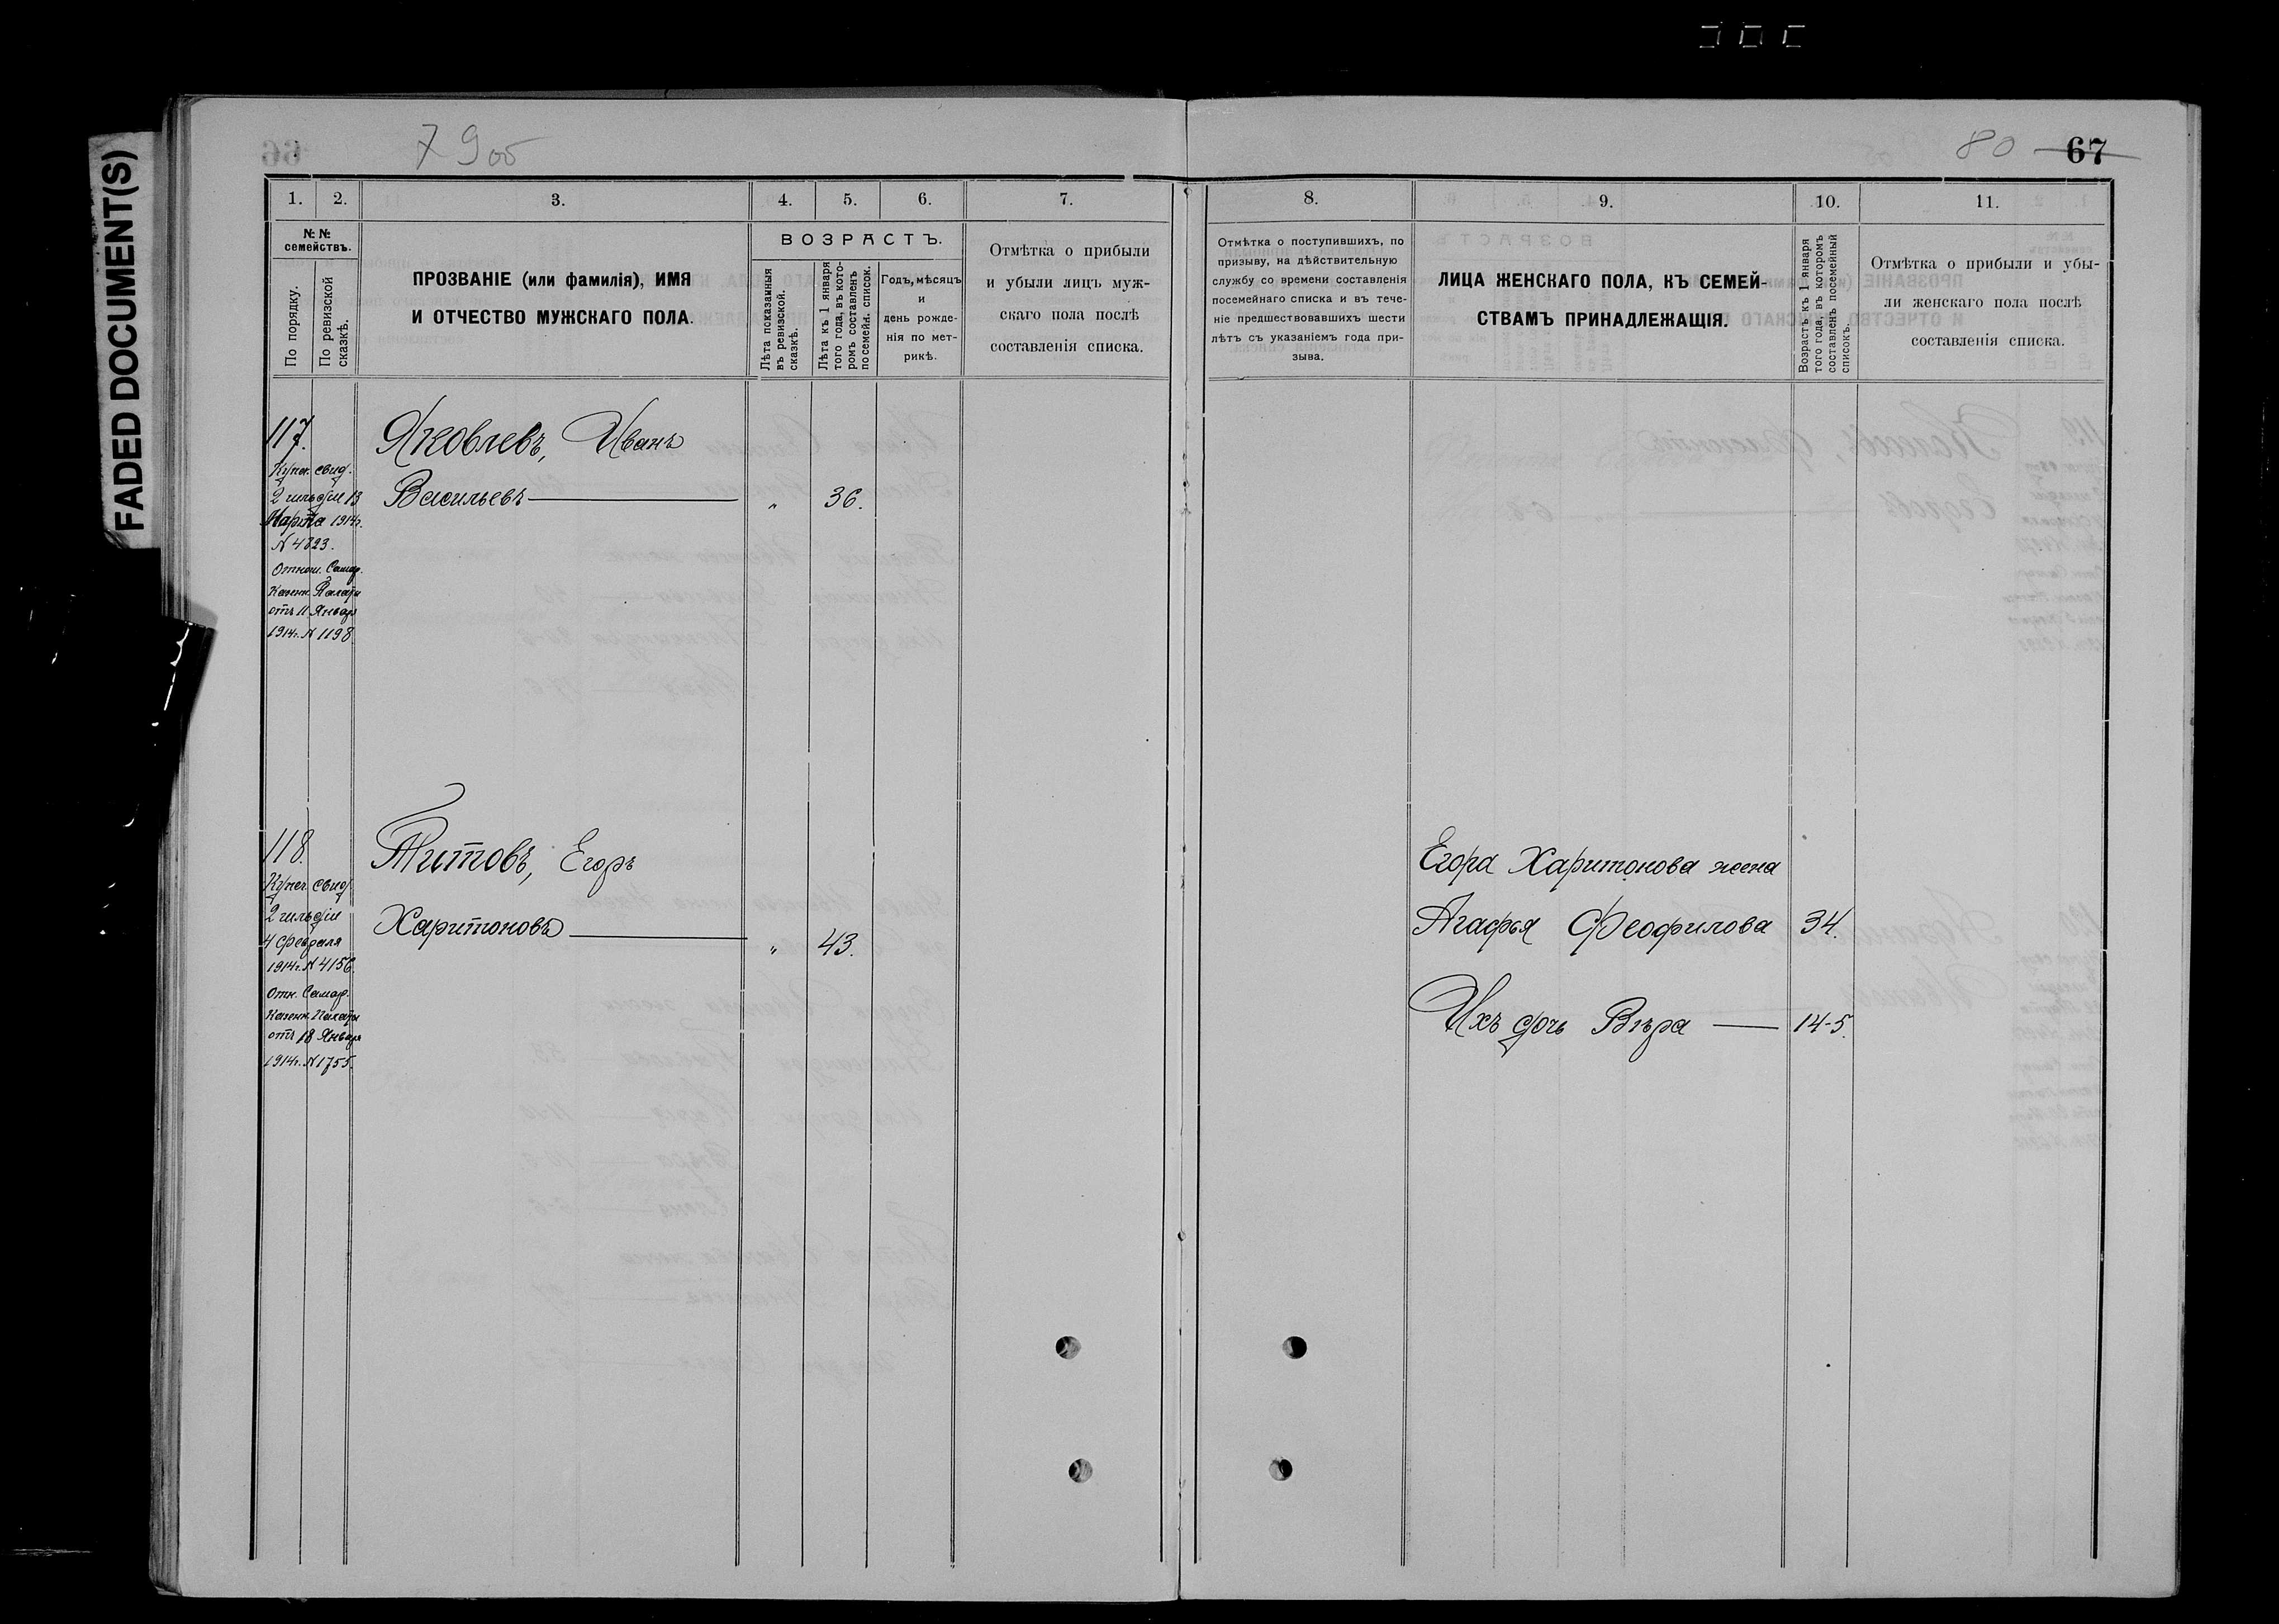 FADED DOCUMENT(S)
79об
80 67
1. 2. 3. 4. 5. 6. 7.
№ №
семействъ.
По порядку.
По ревизской
сказкѣ.
ПРОЗВАНІЕ (или фамилія), ИМЯ
И ОТЧЕСТВО МУЖСКАГО ПОЛА.
ВОЗРАСТЪ.
Лѣта показанныя
въ ревизской.
сказкѣ.
Лѣта къ 1 января
того года, въ кото-
ромъ составленъ
посемейн. список.
Годъ, мѣсяцъ
и
день рожде-
нія по мет-
рикѣ.
Отмѣтка о прибыли
и убыли лицъ муж-
скаго пола послѣ
составленія списка.
117.
Купеч. свид.
2 гильдіи 13
Марта 1914г.
N 4823.
Отнош. Самар.
Казенн. Палаты
отъ 11 Января
1914г. N 1198.
Яковлевъ, Иванъ
Васильевъ — „ 36.
118.
Купеч. свид.
2 гильдіи
4 февраля
1914г. N 4156.
Отн. Самар.
Казенн. Палаты
отъ 18 Января
1914г. N 1755.
Титовъ, Егоръ
Харитоновъ — „ 43.
8. 9. 10. 11.
Отмѣтка о поступившихъ, по
призыву, на дѣйствительную
службу со времени составленія
посемейнаго списка и въ тече-
ніе предшествовавшихъ шести
лѣтъ съ указаніемъ года при-
зыва.
ЛИЦА ЖЕНСКАГО ПОЛА, КЪ СЕМЕЙ-
СТВАМЪ ПРИНАДЛЕЖАЩІЯ.
Возрастъ къ 1 января
того года, въ которомъ
составленъ посемейный
списокъ.
Отмѣтка о прибыли и убы-
ли женскаго пола послѣ
составленія списка.
Егора Харитонова жена
Агафья Феофилова 34.
Ихъ дочь Вѣра — 14-5.